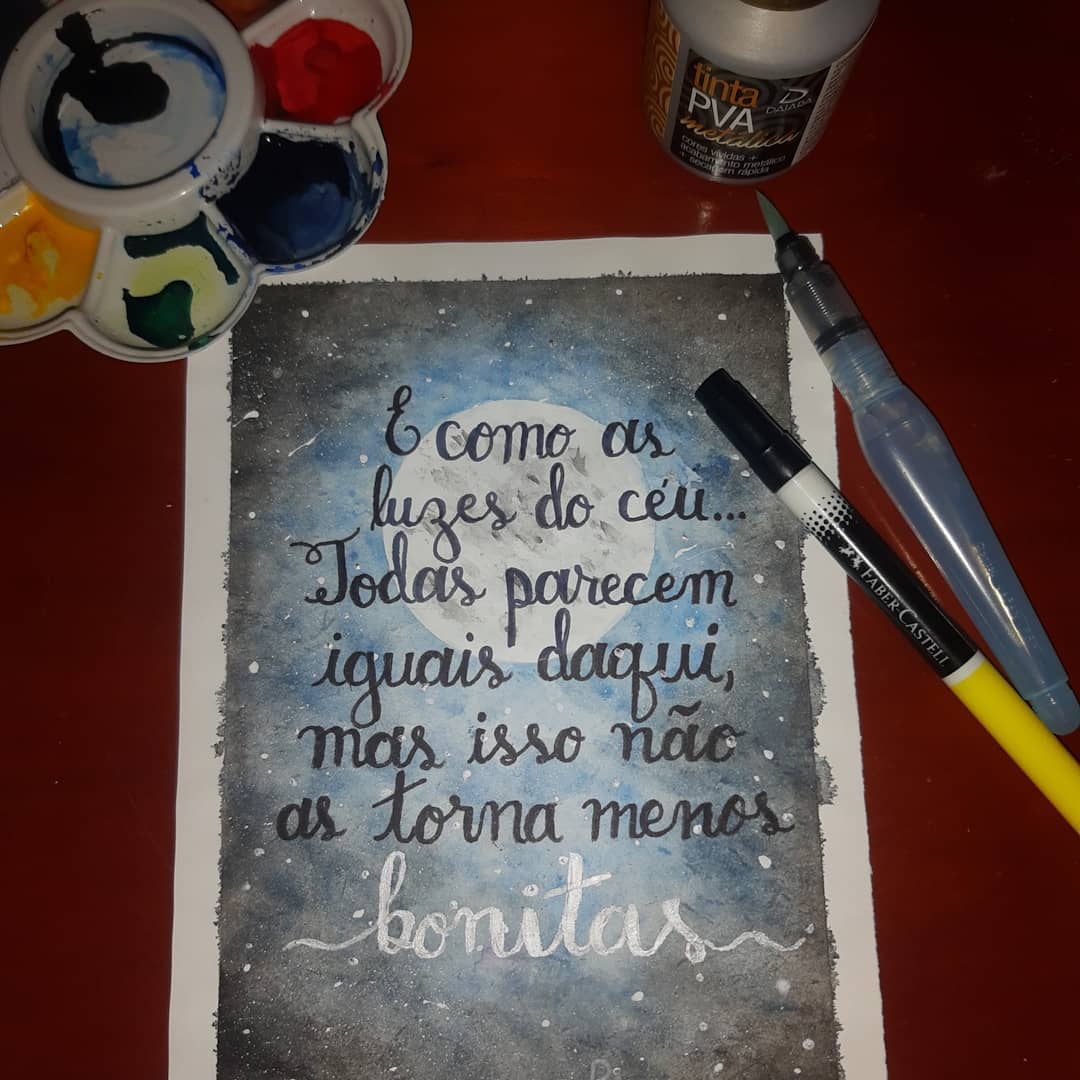 tinta
PVA
metálica
DAIARA
cores vívidas +
acabamento metálico
+ secagem rápida
E como as
luzes do céu...
Todas parecem
iguais daqui,
mas isso não
as torna menos
bonitas
FABER-CASTELL